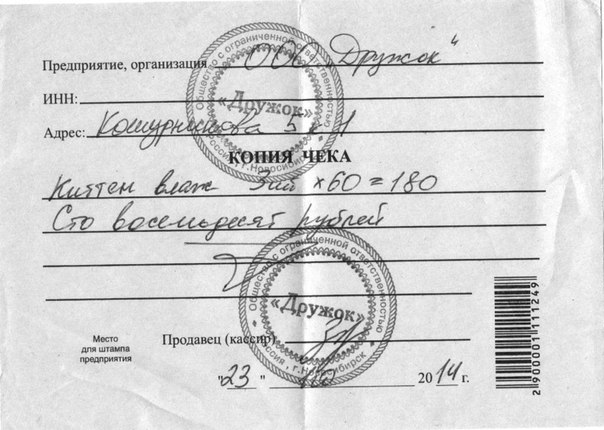 Предприятие, организация ООО "Дружок"
ИНН:
Адрес: Кошурникова 5 к 1
Общество с ограниченной ответственностью
«Дружок»
Россия, г. Новосибирск
КОПИЯ ЧЕКА
Киттен влаж 3шт × 60 = 180
Сто восемьдесят рублей
Общество с ограниченной ответственностью
«Дружок»
Россия, г. Новосибирск
Место
для штампа
предприятия
Продавец (кассир)
"23" 10 2014 г.
2 900001 111249